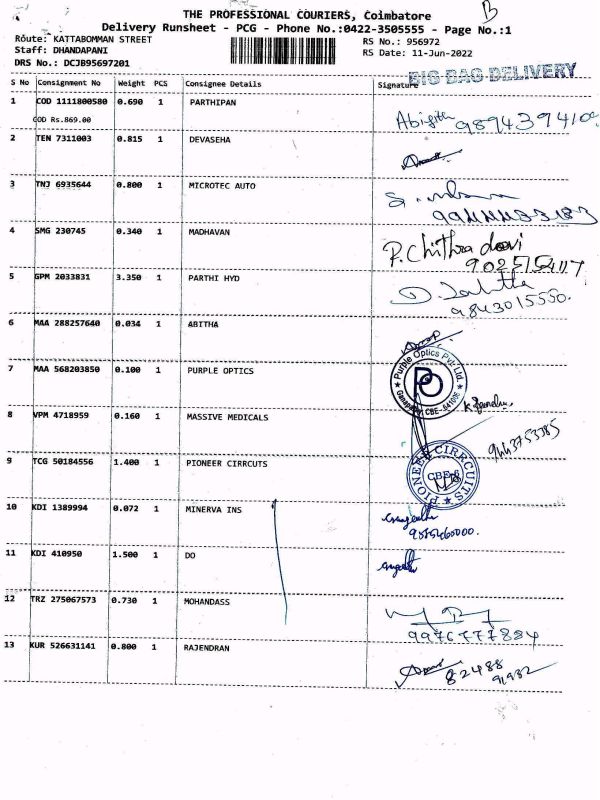 THE PROFESSIONAL COURIERS, Coimbatore
B
Delivery Runsheet - PCG - Phone No.:0422-3505555 - Page No.:1
Route: KATTABOMMAN STREET
RS No.: 956972
Staff: DHANDAPANI
RS Date: 11-Jun-2022
DRS No.: DCJB95697201
BIG BAG DELIVERY
S No Consignment No Weight PCS Consignee Details Signature
1 COD 1111800580 0.690 1 PARTHIPAN
COD Rs.869.00
2 TEN 7311003 0.815 1 DEVASEHA
3 TNJ 6935644 0.800 1 MICROTEC AUTO
4 SMG 230745 0.340 1 MADHAVAN P. Chithra devi
5 GPM 2033831 3.350 1 PARTHI HYD
9843015550.
6 MAA 288257640 0.034 1 ABITHA
7 MAA 568203850 0.100 1 PURPLE OPTICS
Purple Optics Pvt Ltd.
PO
8 VPM 4718959 0.160 1 MASSIVE MEDICALS
9443753385
9 TCG 50184556 1.400 1 PIONEER CIRRCUTS
PIONEER CIRRCUITS
CBE-6
10 KDI 1389994 0.072 1 MINERVA INS
11 KDI 410950 1.500 1 DO
12 TRZ 275067573 0.730 1 MOHANDASS
9976777884
13 KUR 526631141 0.800 1 RAJENDRAN
82488
91932